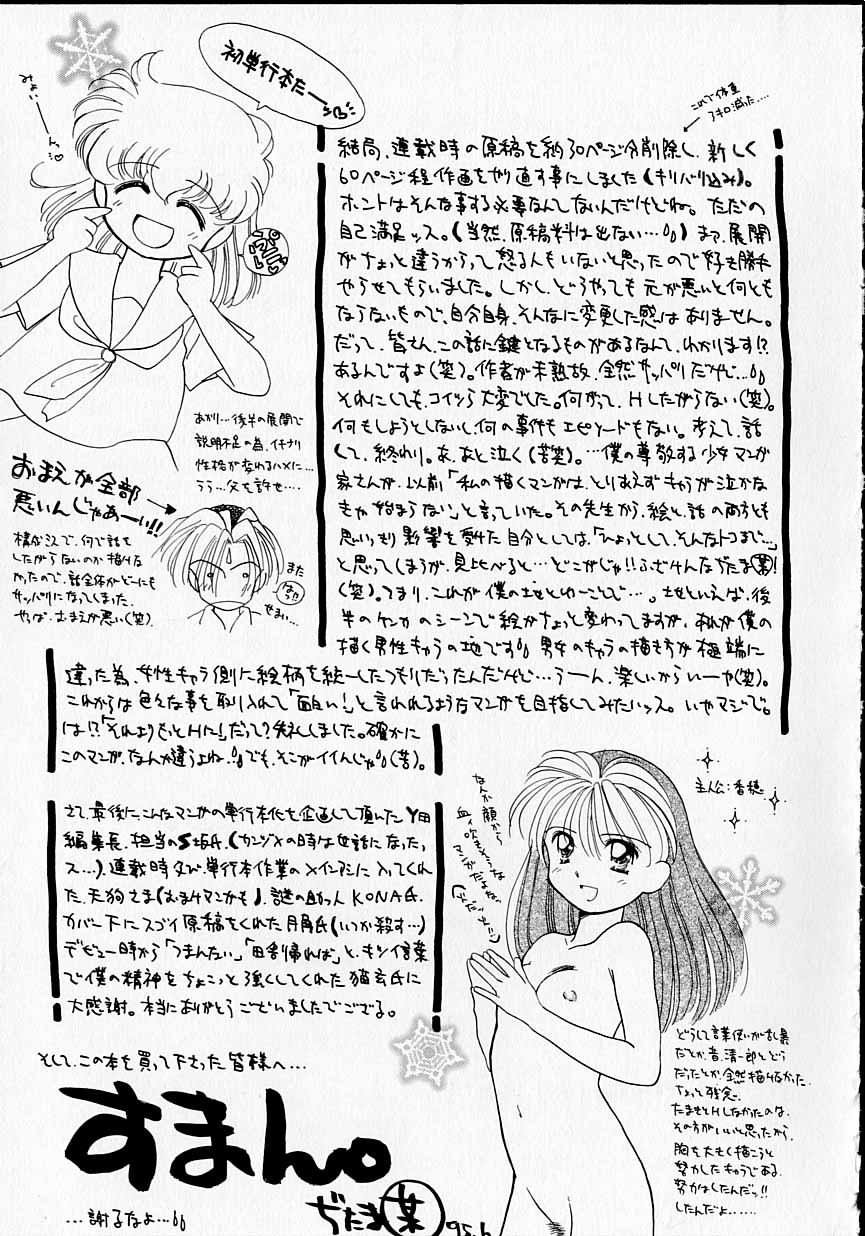 初単行本だー
みょいーんっ♡
これで体重
7キロ減った….
結局、連載時の原稿を約30ページ分削除し、新しく
60ページ程作画をやり直す事にしました(キリバリ込み)。
ホントはそんな事する必要なんてないんだけどね。ただの
自己満足ッス。(当然、原稿料は出ない…。)まっ、展開
がちょっと違うからって怒る人もいないと思ったので好き勝手
やらせてもらいました。しかし、どうやっても元が悪いと何とも
ならないもので、自分自身、そんなに変更した感はありません。
だって、皆さん、この話に鍵となるものがあるなんて、わかります!?
あるんですよ(笑)。作者が未熟故、全然サッパリだけど…。
それにしても、コイツら大変でした。何がって、Hしたがらない(笑)。
何もしようとしないし、何の事件もエピソードもない。考えて、話
して、終わり。あ、あと泣く(苦笑)。…僕の尊敬する少女マンガ
家さんが、以前「私の描くマンガは、とりあえずキャラが泣かな
きゃ始まらない」と言っていた。その先生から、絵と話のあり方も
思いっきり影響を受けた自分としては、「ひょっとして、そんなトコまで…」
と思ってしまうが、見比べると…どこがじゃ!!ふざけんなぢたま(某)!
(笑)。つまり、これが僕の地とゆーことで…。地といえば、後
半のケンカのシーンで絵がちょっと変わってますが、あれが僕の
描く男性キャラの地です。男女のキャラの描き方が極端に
違った為、女性キャラ側に絵柄を統一したつもりだったんだけど…うーん、楽しいからいーや(笑)。
これからは色々な事を取り入れて「面白い!」と言われるようなマンガを目指してみたいッス。いやマジで。
は!?「それよりもっとHに!」だって?失礼しました。確かに
このマンガ、なんか違うよね。でも、そこがイイんじゃ。(苦)。
あかり…後半の展開で
説明不足の為、イキナリ
性格が変わるハメに…
うう…父を許せ….
おまえが全部
悪いんじゃあーい!!
構成ミスで、何で話を
したがらないのか描けな
かったので、話全体がどーにも
サッパリになってしまった。
やっぱ、おまえが悪い(笑)
また
せまい…
さて、最後にこんなマンガの単行本化を企画して頂いたY田
編集長、担当のS坂氏、(カンヅメの時は世話になったッ
ス…)、連載時及び、単行本作業のメインアシに入ってくれ
た、天狗さま(おまけマンガも)、謎の助っ人KONA氏、
カバー下にスゴイ原稿をくれた月角氏(いつか殺す…)
デビュー時から「つまんない」「田舎帰れば」と、キツイ言葉
で僕の精神をちょこっと強くしてくれた猫玄氏に
大感謝。本当にありがとうございましたでござる。
主人公:香穂
なんか顔から
血ィ吹きそうな
マンガだよね
どうして言葉使いが乱暴
だとか、昔、清一郎とどう
だったとか、全然描けなかった。
ちょっと残念。
たませとHしなかったのは、
その方がいいと思ったから。
胸を大きく描こうと
努力したキャラである。
努力はしたんだっ!!
したんだよ……
そして、この本を買って下さった皆様へ…
すまん。
…謝るなよ…。
ぢたま(某)
95.6